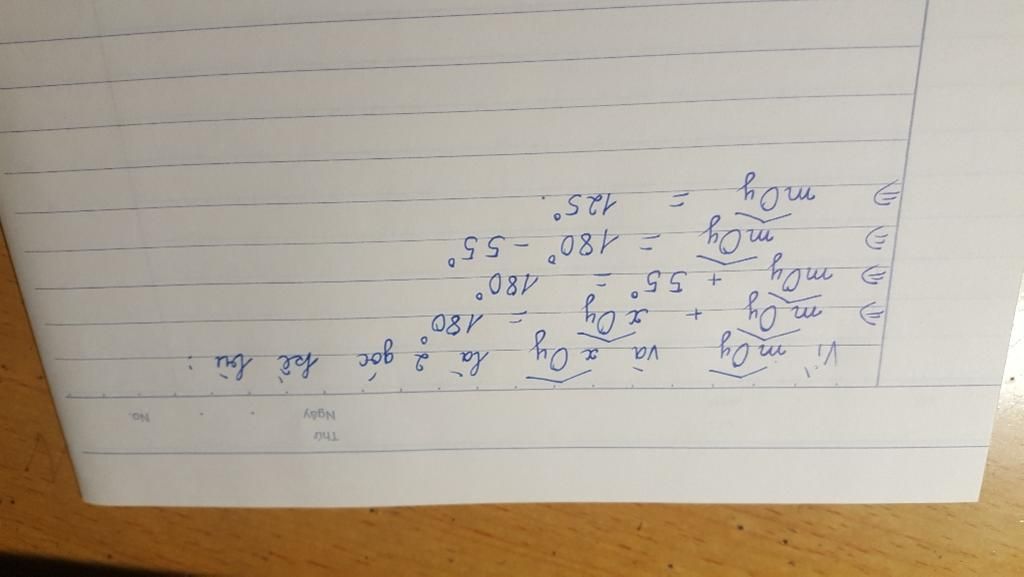 Thứ
Ngày . . No.
Vì mOy và xOy là 2 góc kề bù :
=> mOy + xOy = 180°
=> mOy + 55° = 180°
=> mOy = 180° - 55°
=> mOy = 125°.